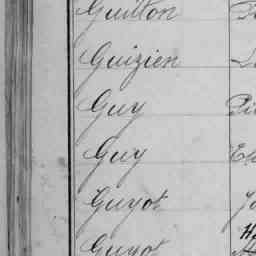 Guillon
Guizien
Guy
Guy
Guyot
Guyot